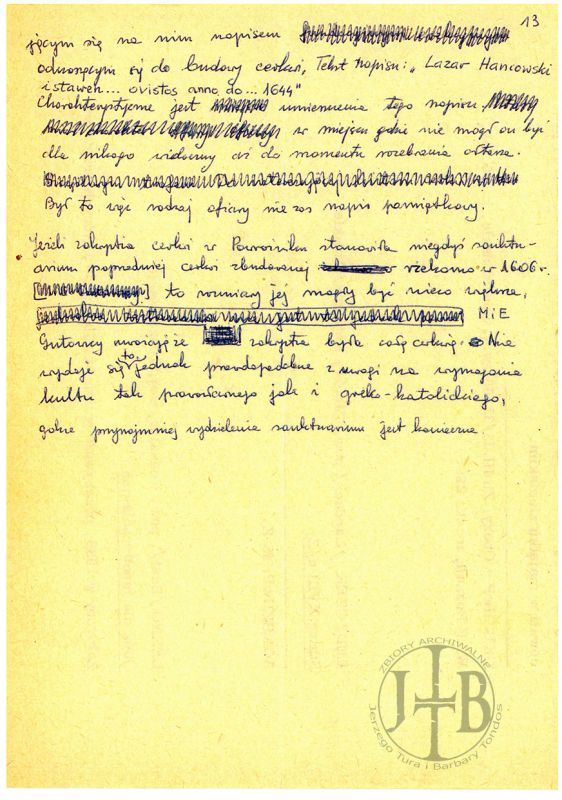 13
jącym się na nim napisem
odnoszącym się do budowy cerkwi, Tekst napisu: „Lazar Hancowski
i stawen... ovistos anno, do... 1644"
Charakterystyczne jest umieszczenie tego napisu
w miejscu gdzie nie mógł on być
dla nikogo widoczny aż do momentu rozebrania ołtarza.
Był to więc rodzaj ofiary nie zaś napis pamiątkowy.
Jeżeli zakrystia cerkwi w Powroźniku stanowiła niegdyś sanktu-
arium poprzedniej cerkwi zbudowanej rzekomo w 1606 r.
to rozmiary jej mogły być nieco większe,
M i E
Gutowscy uważają że zakrystia była całą cerkwią. Nie
wydaje się to jednak prawdopodobne z uwagi na wymagania
kultu tak prawosławnego jak i greko-katolickiego,
gdzie przynajmniej wydzielenie sanktuarium jest konieczne.
ZBIORY ARCHIWALNE
JTB
Jerzego Tura i Barbary Tondos